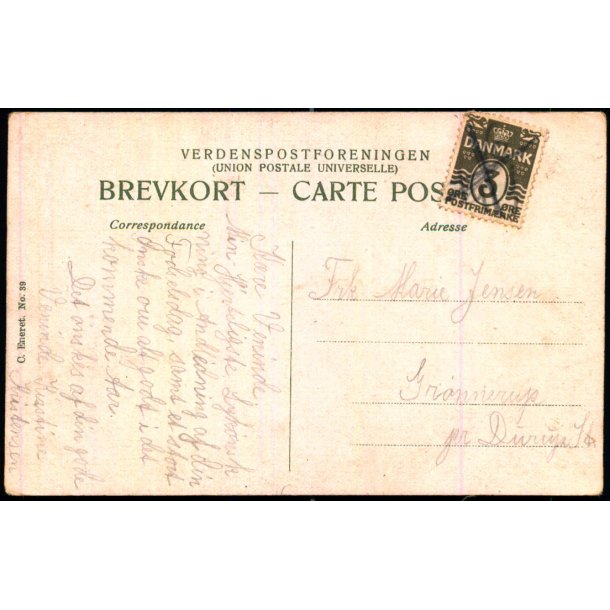 VERDENSPOSTFORENINGEN
(UNION POSTALE UNIVERSELLE)
BREVKORT — CARTE POS
Correspondance
Adresse
DANMARK
3
ØRE ØRE
POSTFRIMÆRKE
C. Eneret. No. 39
Kære Veninde
Min hjerteligste Lykønsk
ning i Anledning af din
Fødselsdag, samt et stort
Ønske om alt godt i det
kommende Aar.
Det ønskes af din gode
Veninde Justine
Kristensen
Frk. Marie Jensen
Grønnerup
pr